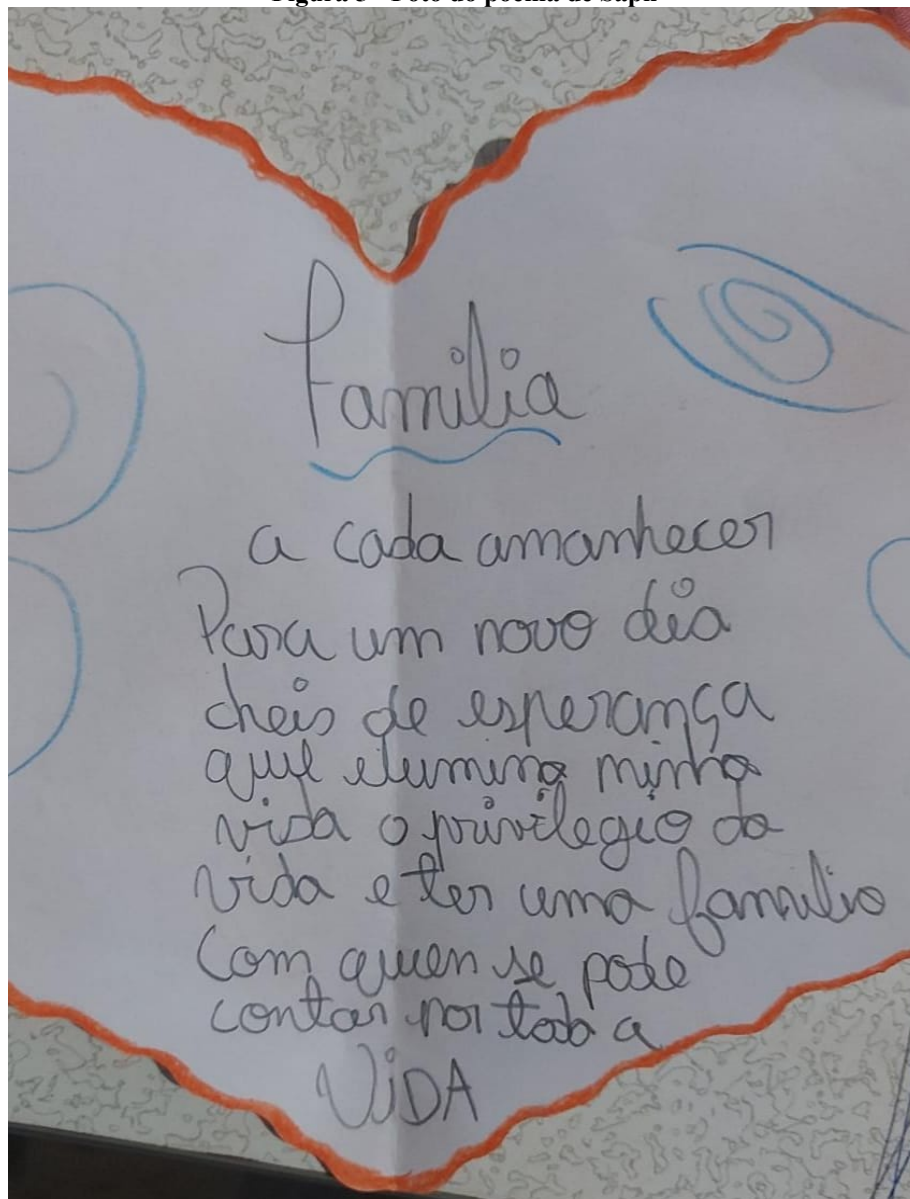 Familia
a cada amanhecer
Para um novo dia
cheis de esperança
que elumina minha
vida o privilegio da
vida e ter uma familia
com quen se pode
contar por toda a
ViDA